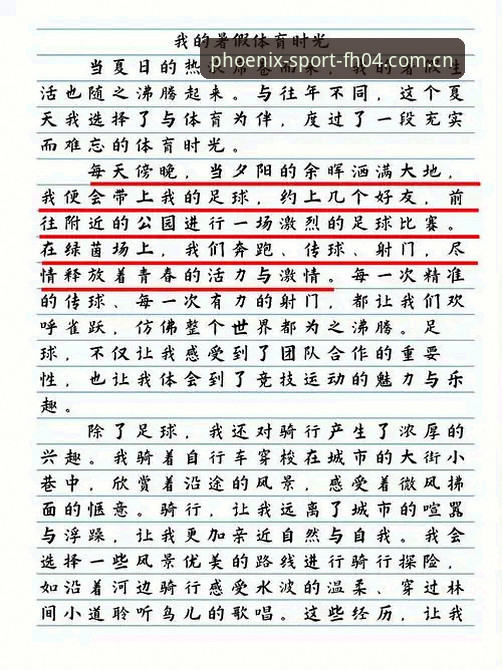 我的暑假体育时光
phoenix-sport-fh04.com.cn
当夏日的热浪席卷而来，我的暑假生
活也随之沸腾起来。与往年不同，这个夏
天我选择了与体育为伴，度过了一段充实
而难忘的体育时光。
每天傍晚，当夕阳的余晖洒满大地，
我便会带上我的足球，约上几个好友，前
往附近的公园进行一场激烈的足球比赛。
在绿茵场上，我们奔跑、传球、射门，尽
情释放着青春的活力与激情。每一次精准
的传球、每一次有力的射门，都让我们欢
呼雀跃，仿佛整个世界都为之沸腾。足
球，不仅让我感受到了团队合作的重要
性，也让我体会到了竞技运动的魅力与乐
趣。
除了足球，我还对骑行产生了浓厚的
兴趣。我骑着自行车穿梭在城市的大街小
巷中，欣赏着沿途的风景，感受着微风拂
面的惬意。骑行，让我远离了城市的喧嚣
与浮躁，让我更加亲近自然与自我。我会
选择一些风景优美的路线进行骑行探险，
如沿着河边骑行感受水波的温柔、穿过林
间小道聆听鸟儿的歌唱。这些经历，让我